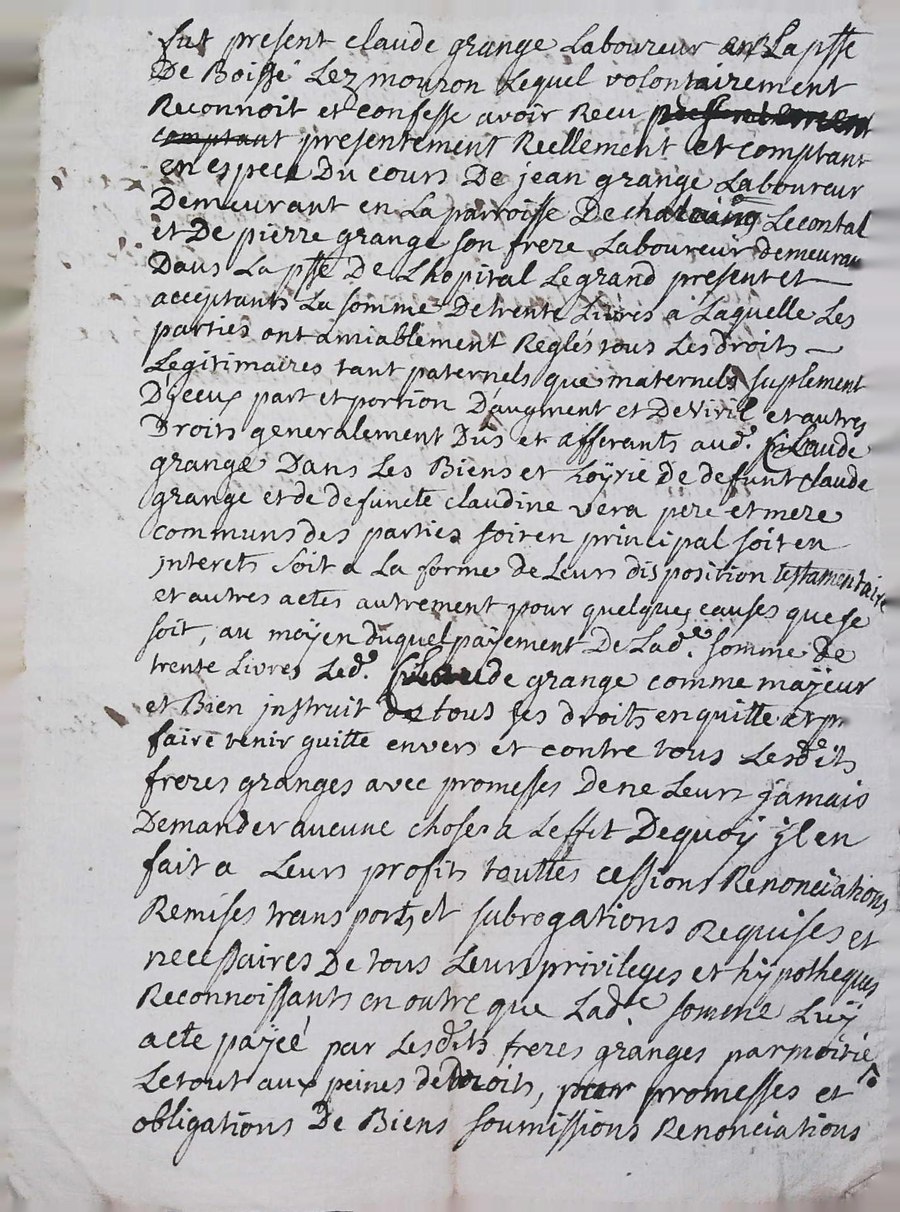 fut present claude grange Laboureur en La psse
De Boisse Lez mouron Lequel volontairement
Reconnoit et confesse avoir Recu
comptant presentement Reellement et comptant
en espece Du cours De jean grange Laboureur
Demeurant en La parroisse De chalaing Lecontal
et De pierre grange son frere Laboureur demeuran
Dans La psse De Lhopital Le grand present et
acceptants La somme De trente Livres a Laquelle Les
parties ont amiablement Reglés tous Les droits
Legitimaires tant paternels que maternels suplement
D'yceux part et portion D'augment et De Viril et autres
Droits generalement Dus et afferants aud. Claude
grange Dans Les Biens et hoÿrie De defunt claude
grange et de defuncte claudine vera pere et mere
communs des parties soit en principal soit en
interets soit a La forme de Leurs disposition testamentaire
et autres actes autrement pour quelques causes que se
soit, au moÿen duquel paÿement De Lad.e somme de
trente Livres Led. Claude grange comme majeur
et Bien instruit de tous ses droits en quitte et p.
faire tenir quitte envers et contre tous Lesdits
freres granges avec promesses De ne Leurs jamais
Demander aucune choses a Leffet Dequoÿ jl en
fait a Leurs profits touttes cessions Renonciations
Remises transports et subrogations Requises et
necessaires De tous Leurs privileges et hÿpotheques
Reconnoissants en outre que Ladte somme Luÿ
acte paÿeé par Lesdits freres granges par moitié
Le tout aux peines de Droits, promesses et
obligations De Biens soumissions Renonciations